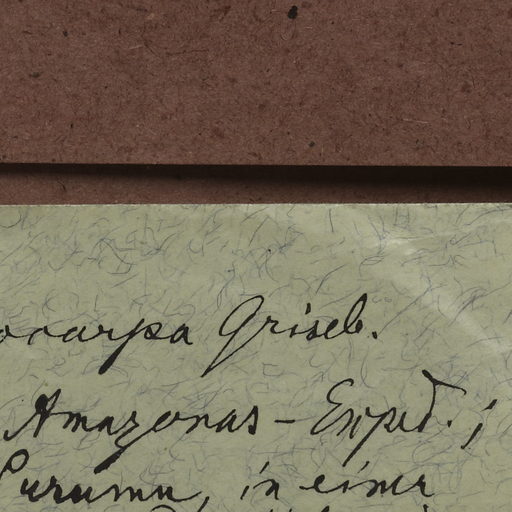 ocarpa Griseb.
Amazonas-Exped.;
Surumu, in einer